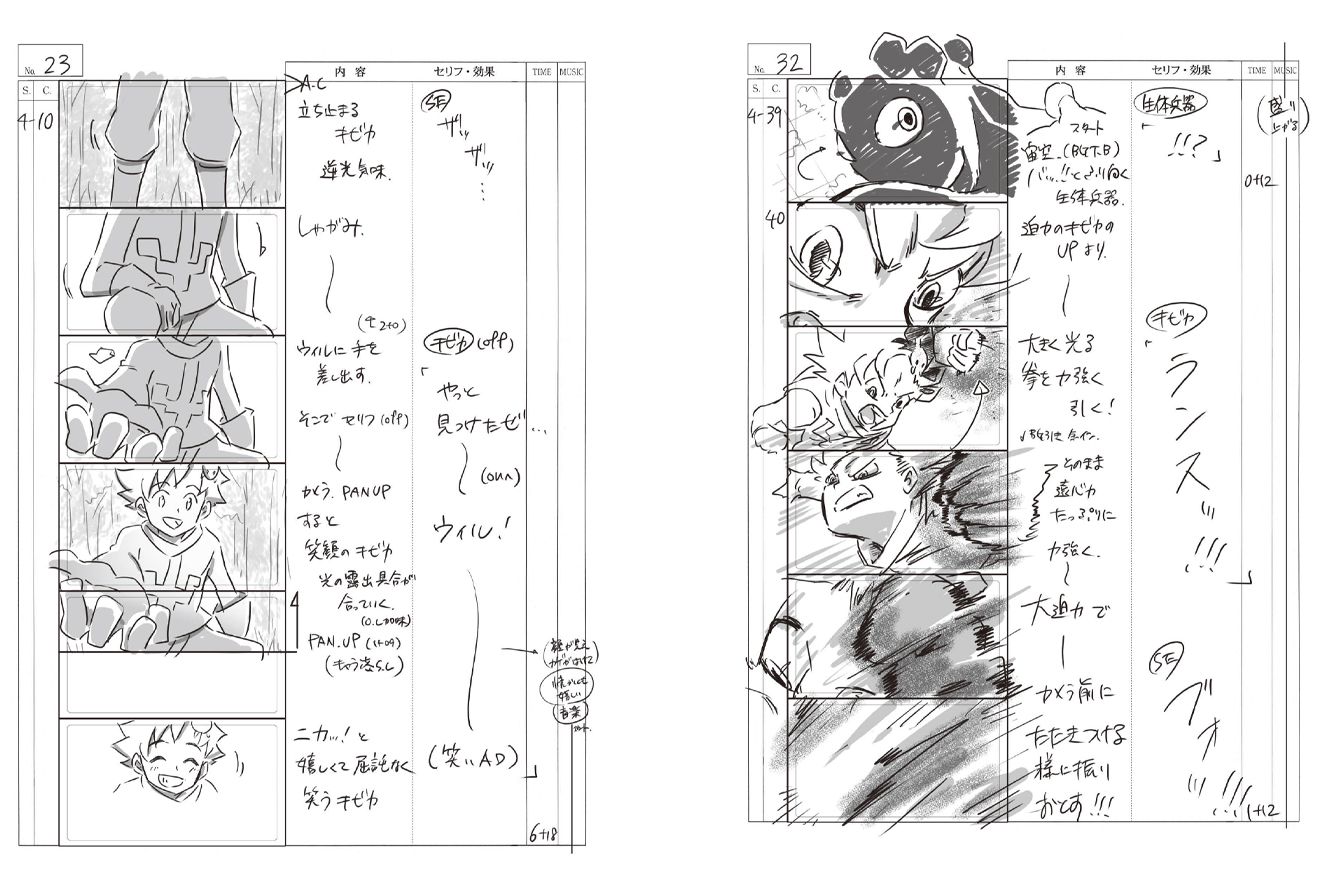 No. 23
S. C. 内容 セリフ・効果 TIME MUSIC
4-10
A.C
立ち止まる
キビカ
逆光気味.
SE
ザッ
ザッ
⋮
しゃがみ.
ウィルに手を
差し出す.
そこでセリフ(off)
キビカ (off)
「やっと
見つけたぜ…
(on)
ウィル!
カメラ. PAN UP
すると
笑顔のキビカ
光の露出具合が
合っていく.
PAN.UP (1+09)
嬉しい
音楽
ニカッ!と
嬉しくて屈託なく
笑うキビカ
(笑いAD)」
6+18
No. 32
S. C. 内容 セリフ・効果 TIME MUSIC
4-39
スタート
バッ!!とふり向く
生体兵器.
生体兵器
「!!?」
(盛り
上がる)
0+12
40
迫力のキビカの
UPより.
大きく光る
拳を力強く
引く!
キビカ
「ランス!!!」
そのまま
遠心力
たっぷりに
力強く.
大迫力で
カメラ前に
たたきつける
様に振り
おとす!!!
SE
ブォ!!!
1+12